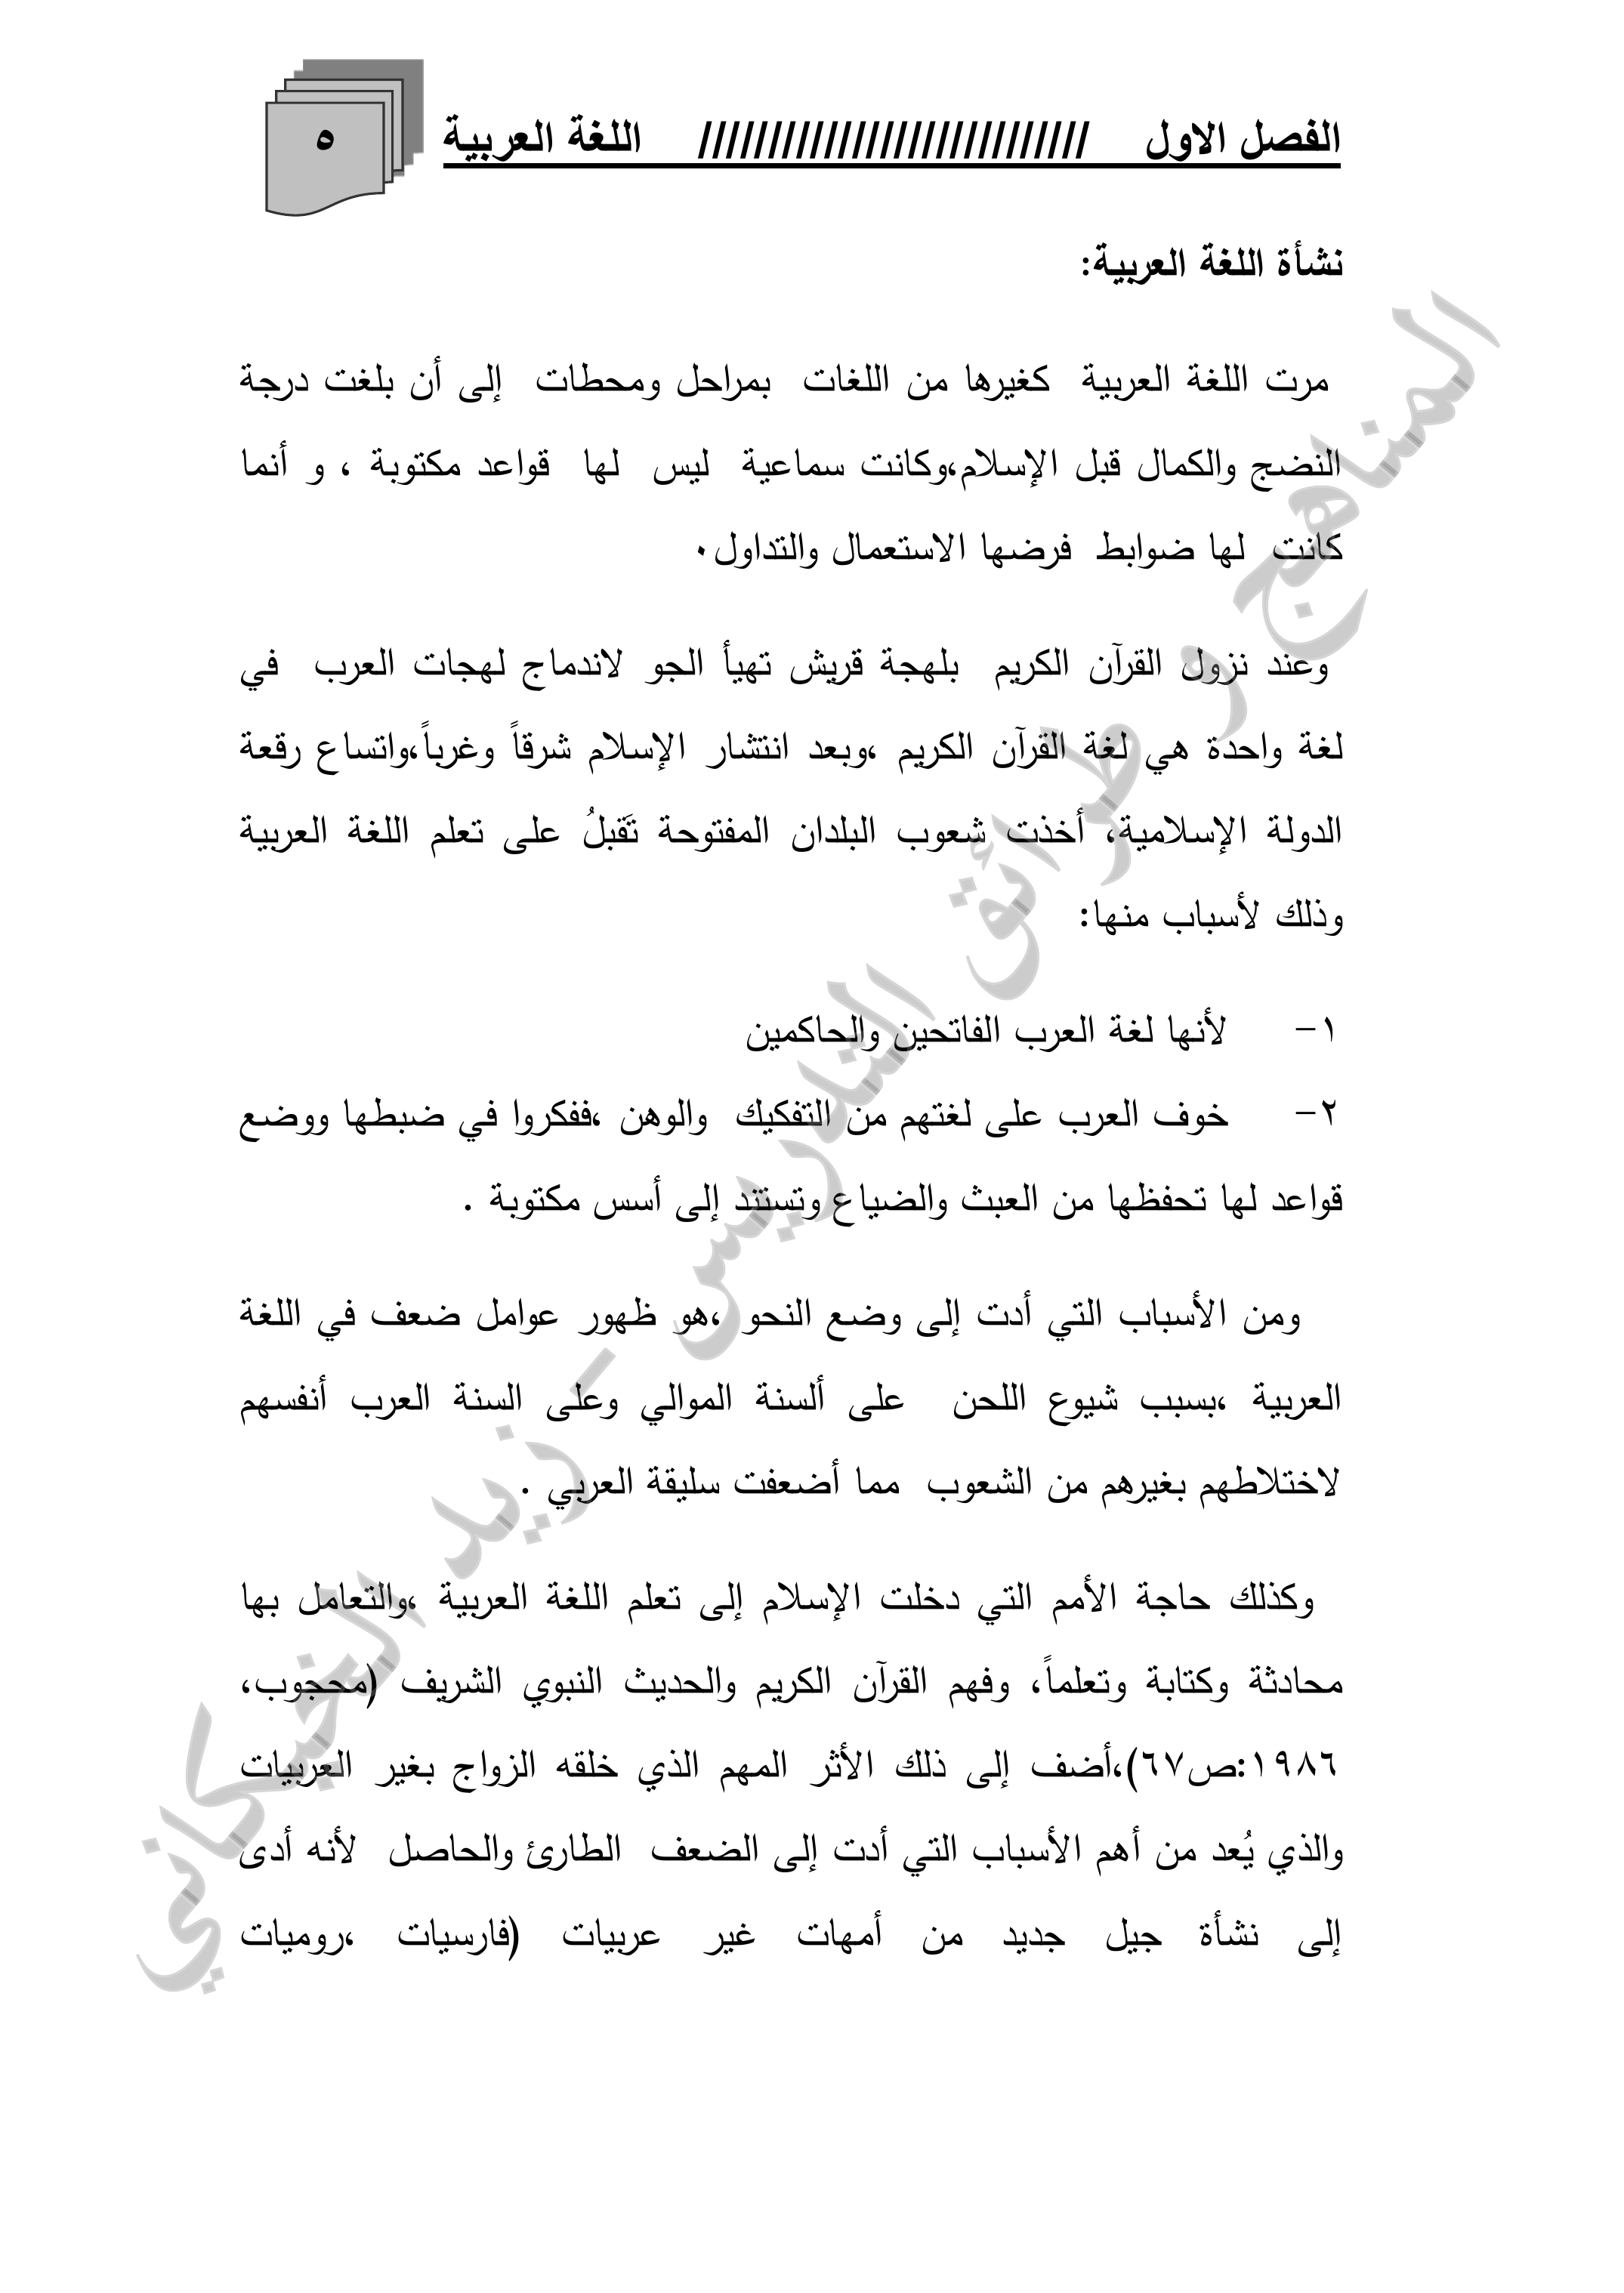 الفصل الاول //////////////////////////// اللغة العربية ٥
نشأة اللغة العربية:
مرت اللغة العربية كغيرها من اللغات بمراحل ومحطات إلى أن بلغت درجة
النضج والكمال قبل الإسلام،وكانت سماعية ليس لها قواعد مكتوبة ، و أنما
كانت لها ضوابط فرضها الاستعمال والتداول٠
وعند نزول القرآن الكريم بلهجة قريش تهيأ الجو لاندماج لهجات العرب في
لغة واحدة هي لغة القرآن الكريم ،وبعد انتشار الإسلام شرقاً وغرباً،واتساع رقعة
الدولة الإسلامية، أخذت شعوب البلدان المفتوحة تَقبلُ على تعلم اللغة العربية
وذلك لأسباب منها:
١- لأنها لغة العرب الفاتحين والحاكمين
٢- خوف العرب على لغتهم من التفكيك والوهن ،ففكروا في ضبطها ووضع
قواعد لها تحفظها من العبث والضياع وتستند إلى أسس مكتوبة .
ومن الأسباب التي أدت إلى وضع النحو ،هو ظهور عوامل ضعف في اللغة
العربية ،بسبب شيوع اللحن على ألسنة الموالي وعلى السنة العرب أنفسهم
لاختلاطهم بغيرهم من الشعوب مما أضعفت سليقة العربي .
وكذلك حاجة الأمم التي دخلت الإسلام إلى تعلم اللغة العربية ،والتعامل بها
محادثة وكتابة وتعلماً، وفهم القرآن الكريم والحديث النبوي الشريف (محجوب،
١٩٨٦:ص٦٧)،أضف إلى ذلك الأثر المهم الذي خلقه الزواج بغير العربيات
والذي يُعد من أهم الأسباب التي أدت إلى الضعف الطارئ والحاصل لأنه أدى
إلى نشأة جيل جديد من أمهات غير عربيات (فارسيات ،روميات
المناهج و طرائق التدريس - زيد الخيكاني